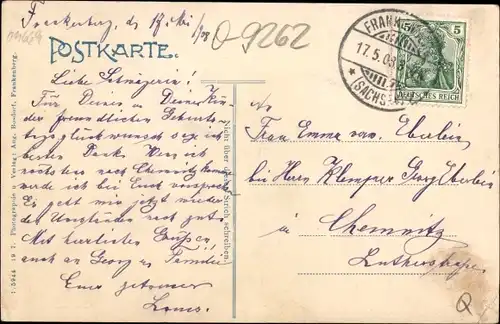 Frankenberg, d 17. Mai /08
POSTKARTE.
Liebe Schwägerin!
Für Deinen u. Deiner Kinder
freundlichen Geburts-
tagsglückwunsch sage ich
besten Dank. Wenn ich
nächstens nach Chemnitz komme
werde ich bei Euch vorsprechen.
Es geht mir jetzt wieder
den Umständen nach gut.
Mit herzlichen Grüßen
auch an Georg u. Familie
Euer getreuer
Louis.
Nicht über diesen Strich schreiben.
1:5944 19 7. Photographie u. Verlag: Aug. Rossdorf, Frankenberg.
O-9262
FRANKENBERG
17.5.08
* (SACHSEN)
5
DEUTSCHES REICH
An
Frau Emma verw. Eberlein,
bei Herrn Klempner Georg Eberlein
in Chemnitz
Lutherstraße
Q